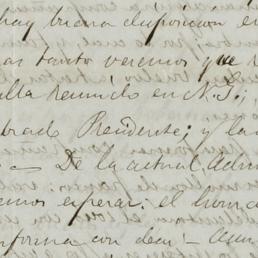 hay buena disposicion en
as tanto veremos que r
alla reunido en N.Y.;
brado Presidente; y la
— De la actual Admi
emos esperar: el hom
nforma con decir —